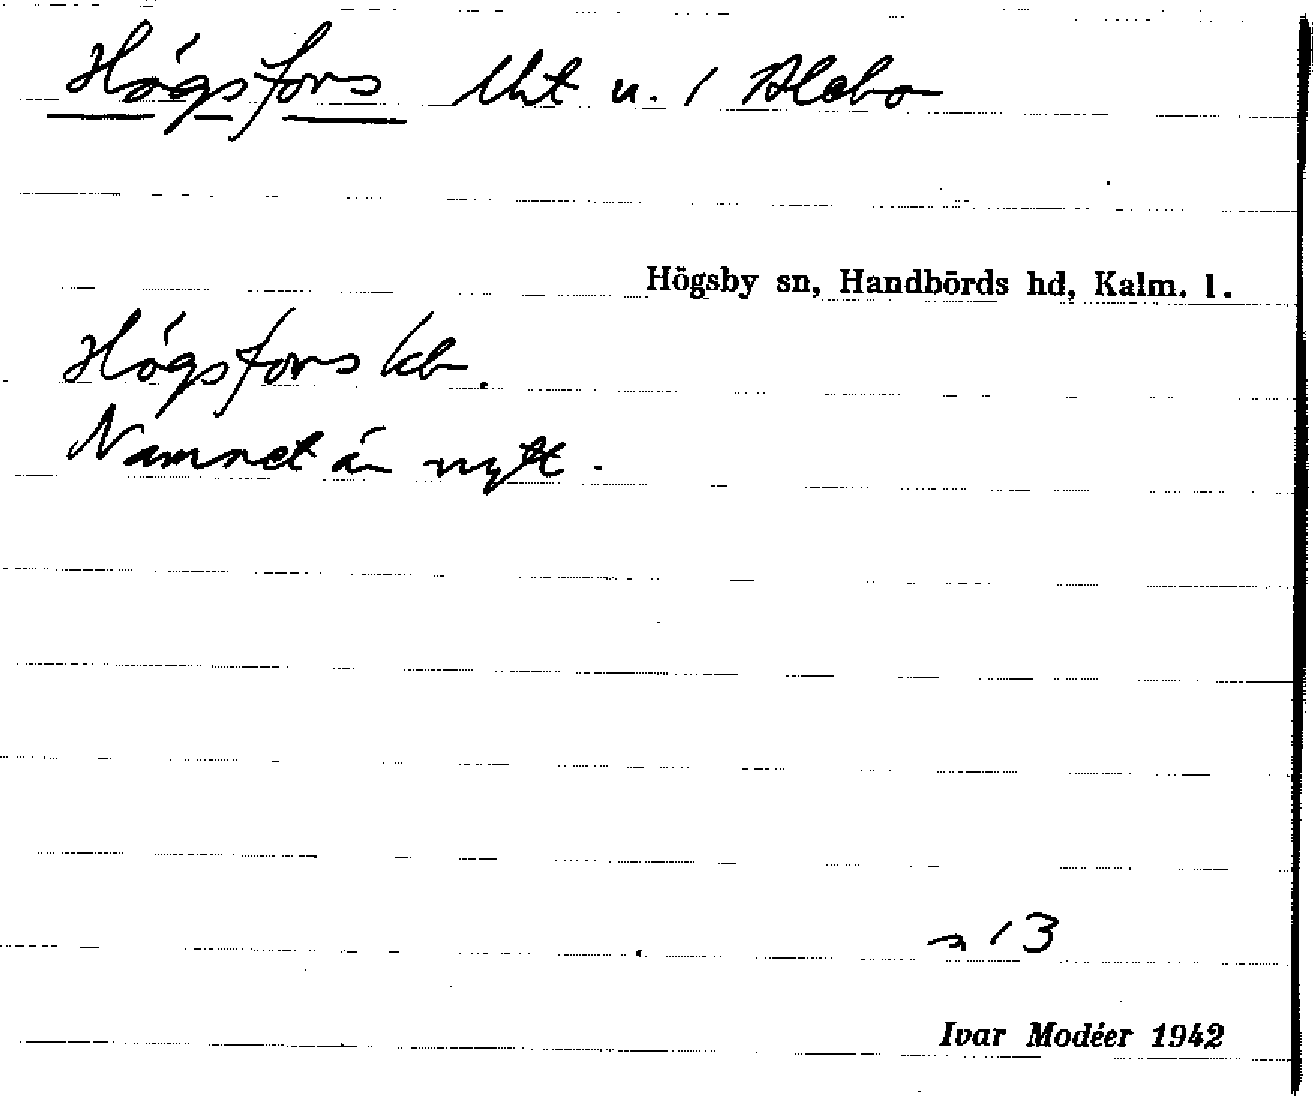 Högsfors Uht u. 1 Alebo
Högsby sn, Handbörds hd, Kalm. l.
Högsfors kb.
Namnet är nytt.
s 13
Ivar Modéer 1942